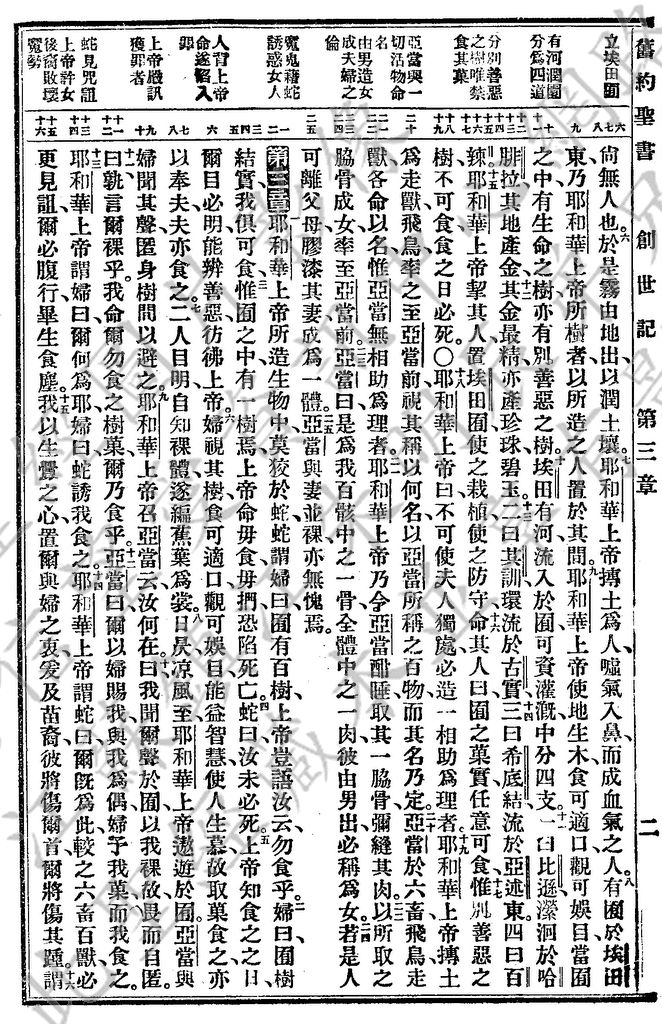 舊約聖書 創世記 第三章 二
立埃田囿
有河潤囿
分爲四道
分別善惡
之樹唯禁
食其菓
亞當與一
切活物命
名
由男造女
成夫婦之
倫
魔鬼藉蛇
誘惑女人
人背上帝
命遂陷入
罪
上帝嚴訊
獲罪者
蛇見咒詛
上帝許女
後裔敗壞
魔勢
尙無人也、六於是霧由地出、以潤土壤、七耶和華上帝摶土爲人、噓氣入鼻、而成血氣之人、八有囿於埃田
東、乃耶和華上帝所樹者、以所造之人置於其間、九耶和華上帝使地生木、食可適口、觀可娛目、當囿
之中有生命之樹、亦有別善惡之樹、十埃田有河流入於囿、可資灌漑、中分四支、十一一曰比遜、瀠洄於哈
腓拉、其地產金、十二其金最精、亦產珍珠碧玉、十三二曰其訓、環流於古實、十四三曰希底結、流於亞述東、四曰百
辣、十五耶和華上帝挈其人、置埃田囿、使之栽植、使之防守、十六命其人曰、囿之菓實、任意可食、十七惟別善惡之
樹、不可食、食之日必死。〇十八耶和華上帝曰、不可使夫人獨處、必造一相助爲理者、十九耶和華上帝摶土
爲走獸飛鳥、率之至亞當前、視其稱以何名、以亞當所稱之百物、而其名乃定、二十亞當於六畜飛鳥走
獸、各命以名、惟亞當無相助爲理者、二一耶和華上帝乃令亞當酣睡、取其一脇骨、彌縫其肉、二二以所取之
脇骨成女、率至亞當前、二三亞當曰、是爲我百骸中之一骨、全體中之一肉、彼由男出、必稱爲女、二四若是人
可離父母、膠漆其妻、成爲一體、二五亞當與妻並裸、亦無愧焉。
第三章 耶和華上帝所造生物中、莫狡於蛇、蛇謂婦曰、囿有百樹、上帝豈語汝云勿食乎、二婦曰、囿樹
結實、我俱可食、三惟囿之中有一樹焉、上帝命毋食毋捫、恐陷死亡、四蛇曰、汝未必死、五上帝知食之之日、
爾目必明、能辨善惡、彷彿上帝、六婦視其樹、食可適口、觀可娛目、能益智慧、使人生慕、故取菓食之、亦
以奉夫、夫亦食之、七二人目明、自知裸體、遂編蕉葉爲裳、八日昃凉風至、耶和華上帝遨遊於囿、亞當與
婦聞其聲、匿身樹間以避之、九耶和華上帝召亞當云、汝何在、十曰、我聞爾聲於囿、以我裸故、畏而自匿、
十一曰、孰言爾裸乎、我命爾勿食之樹菓、爾乃食乎、十二亞當曰、爾以婦賜我、與我爲偶、婦予我菓、而我食之、
十三耶和華上帝謂婦曰、爾何爲耶、婦曰、蛇誘我食之、十四耶和華上帝謂蛇曰、爾旣爲此、較之六畜百獸、必
更見詛、爾必腹行、畢生食塵、十五我以生釁之心、置爾與婦之衷、爰及苗裔、彼將傷爾首、爾將傷其踵、十六謂